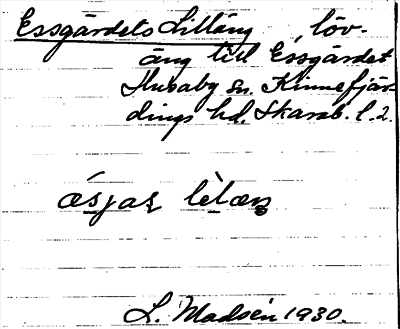 Essgärdets Lilläng, löv-
äng till Essgärdet
Husaby sn. Kinnefjär-
dings hd. Skarab. l. 2.
L. Madsén 1930.